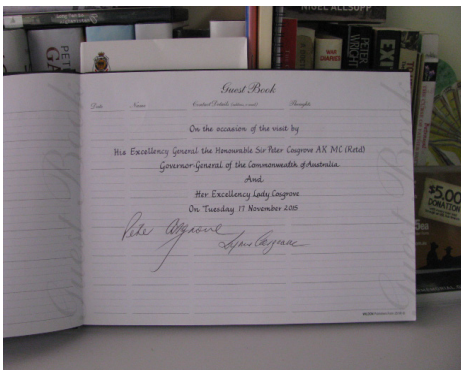 NIGEL ALLSOPP
PETER WRIGHT
EXIT
WAR DIARIES
Guest Book
Date Name Contact Details Thoughts
On the occasion of the visit by
His Excellency General the Honourable Sir Peter Cosgrove AK MC (Retd)
Governor-General of the Commonwealth of Australia
And
Her Excellency Lady Cosgrove
On Tuesday 17 November 2015
Peter Cosgrove
Lynne Cosgrove
$5.00
DONATION
Guest Book